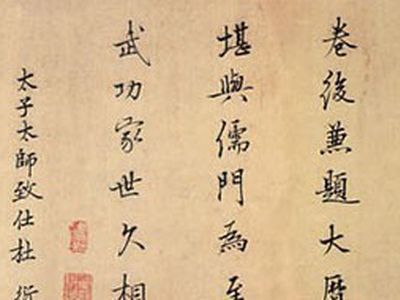 卷後兼題大曆
堪與儒門為至
武功家世久相
太子太師致仕杜衍